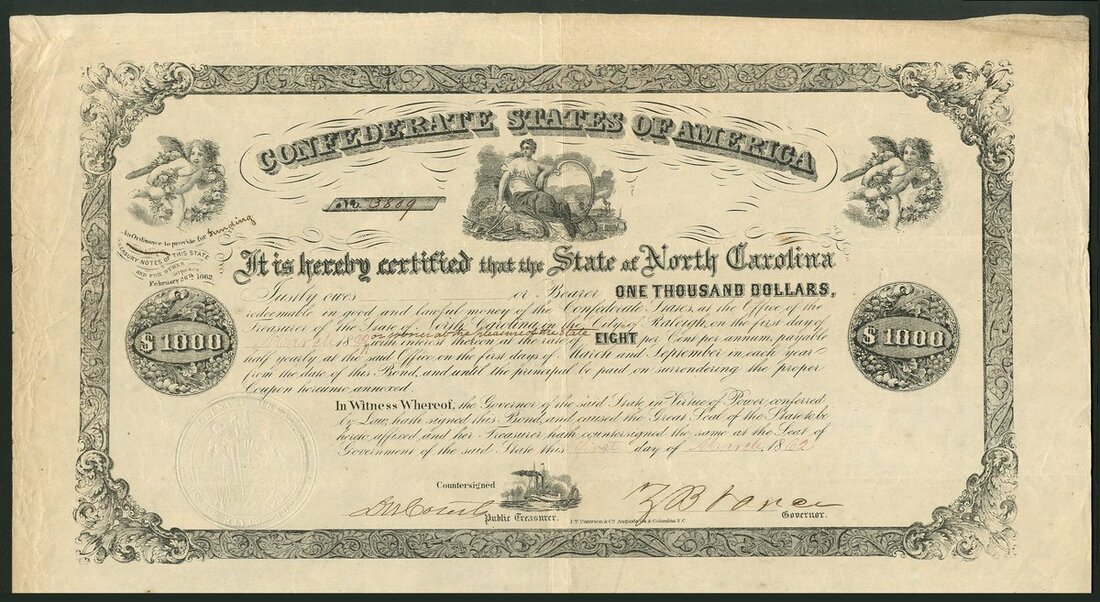 CONFEDERATE STATES OF AMERICA
No. 3809
An Ordinance to provide for Funding
TREASURY NOTES OF THIS STATE
AND FOR OTHER
PURPOSES
February 26th 1862.
It is hereby certified that the State of North Carolina
Justly owes or Bearer ONE THOUSAND DOLLARS,
redeemable in good and lawful money of the Confederate States, at the Office of the
Treasurer of the State of North Carolina in the City of Raleigh, on the first day of
March 18 or at the pleasure of the State
with interest thereon at the rate of EIGHT per Cent per annum, payable
half yearly at the said Office on the first days of March and September in each year
from the date of this Bond, and until the principal be paid on surrendering the proper
Coupon hereunto annexed.
$1000
$1000
In Witness Whereof, the Governor of the said State, in Virtue of Power, conferred
by Law, hath signed this Bond, and caused the Great Seal of the State to be
hereto affixed and her Treasurer hath countersigned the same at the Seat of
Government of the said State this first day of March, 1862
Countersigned
Z B Vance
Public Treasurer.
J. T. Paterson & Co. Augusta Ga. & Columbia S. C.
Governor.